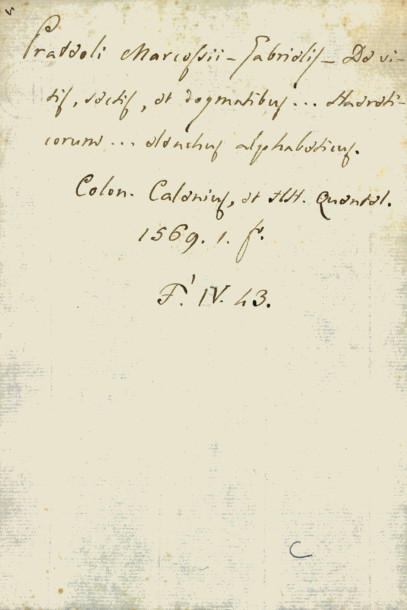 Prateoli Marcossii - Gabrielis - De vi-
tis, sectis, et dogmatibus ... Haereti-
corum ... elenchus alphabeticus.
Colon. Calenius, et HH. Quentel.
1569. 1. f.
F. IV. 43.
C